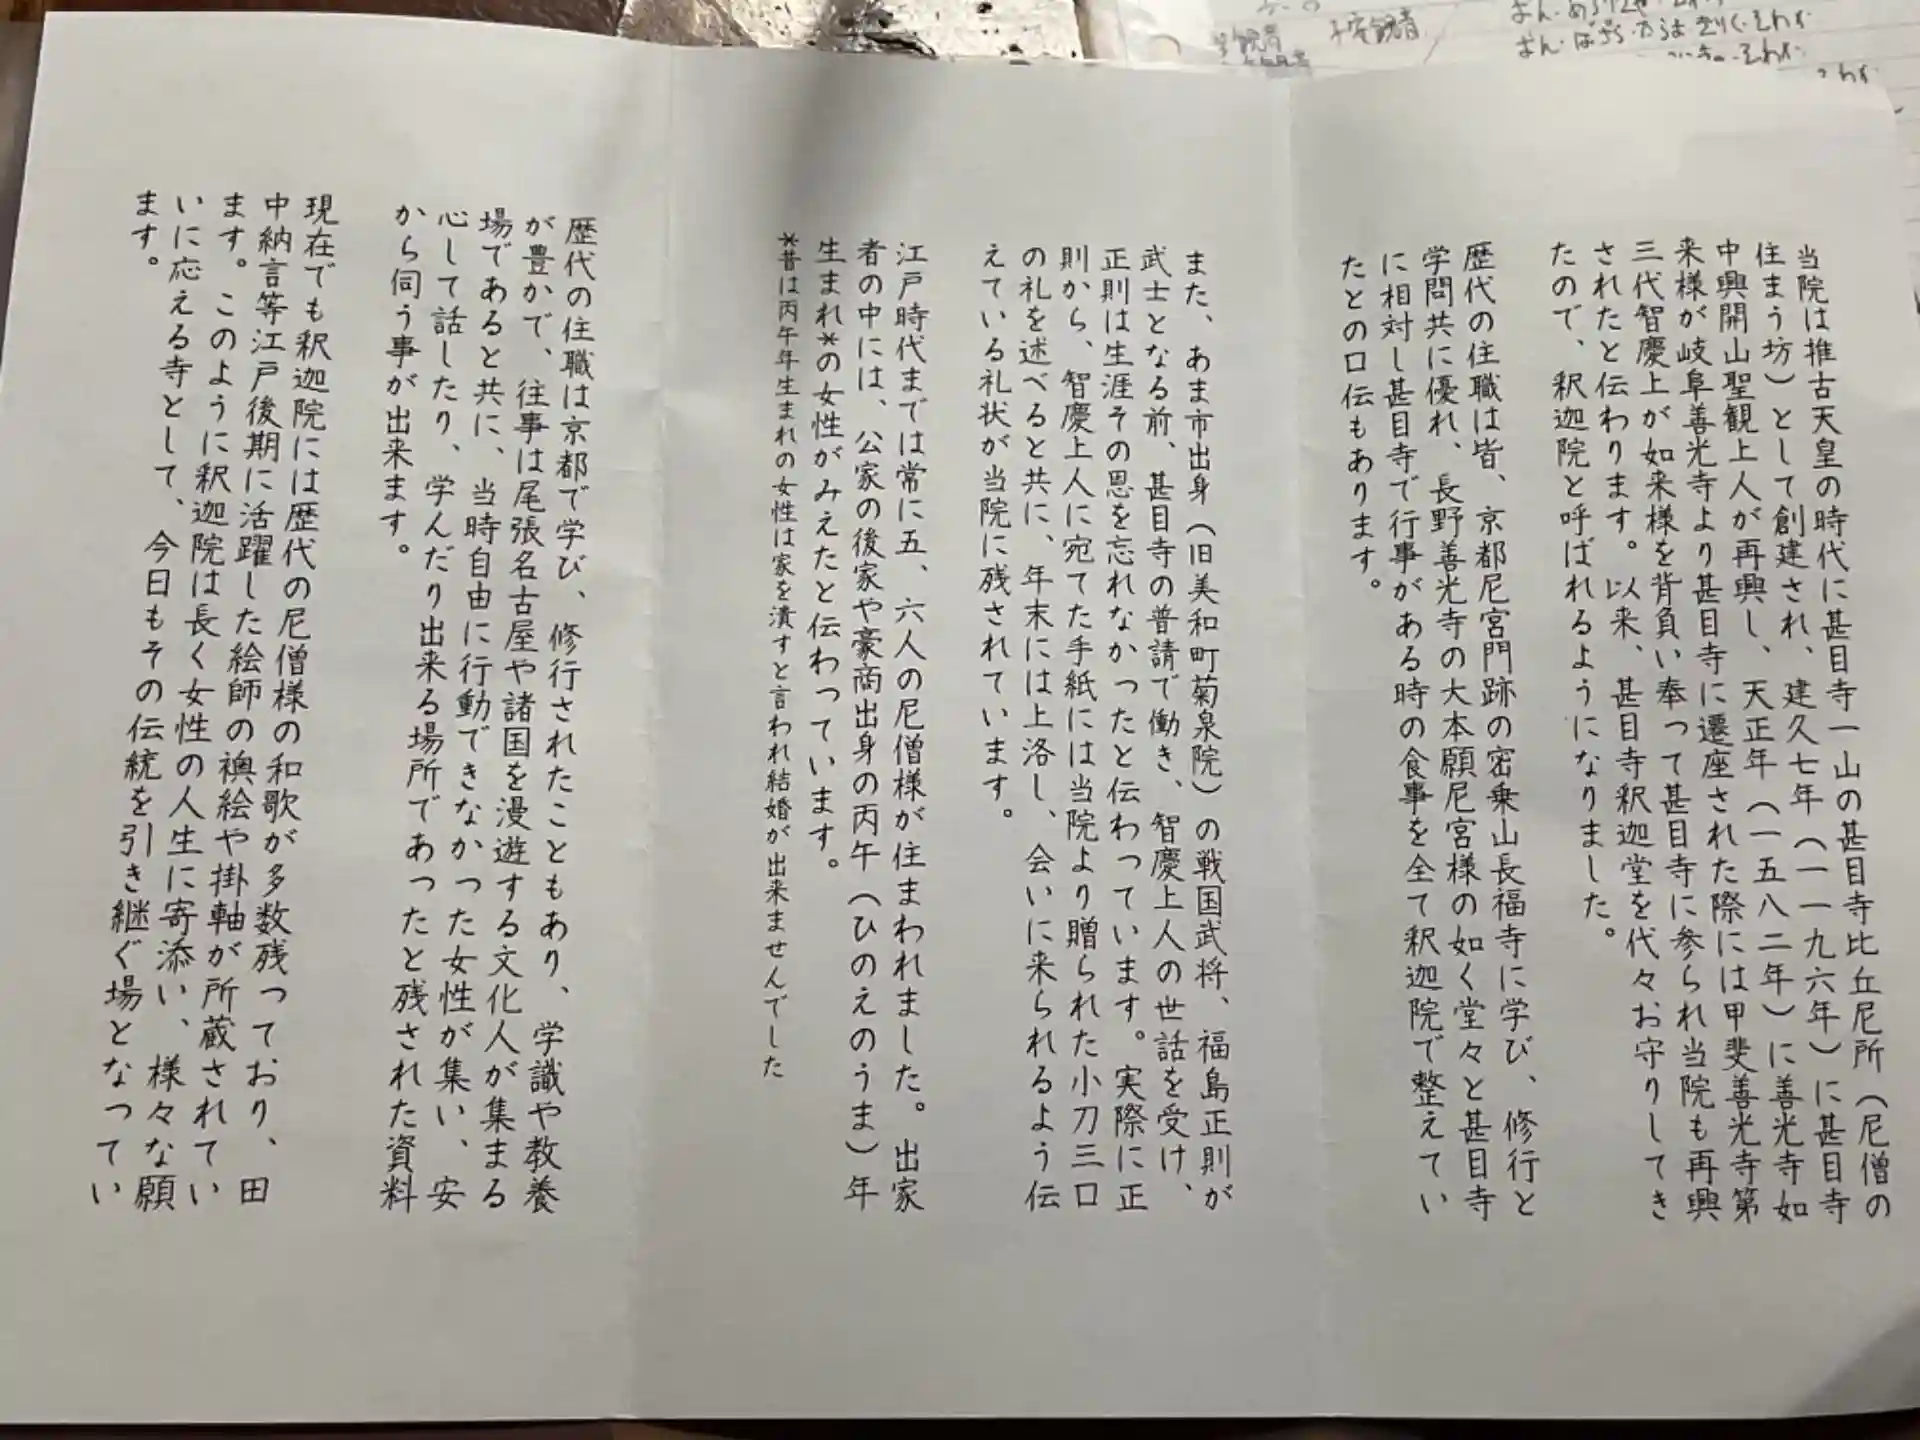 当院は推古天皇の時代に甚目寺一山の甚目寺比丘尼所（尼僧の
住まう坊）として創建され、建久七年（一一九六年）に甚目寺
中興開山聖観上人が再興し、天正年（一五八二年）に善光寺如
来様が岐阜善光寺より甚目寺に遷座された際には甲斐善光寺第
三代智慶上が如来様を背負い奉つて甚目寺に参られ当院も再興
されたと伝わります。以来、甚目寺釈迦堂を代々お守りしてき
たので、釈迦院と呼ばれるようになりました。
歴代の住職は皆、京都尼宮門跡の密乗山長福寺に学び、修行と
学問共に優れ、長野善光寺の大本願尼宮様の如く堂々と甚目寺
に相対し甚目寺で行事がある時の食事を全て釈迦院で整えてい
たとの口伝もあります。
また、あま市出身（旧美和町菊泉院）の戦国武将、福島正則が
武士となる前、甚目寺の普請で働き、智慶上人の世話を受け、
正則は生涯その恩を忘れなかつたと伝わっています。実際に正
則から、智慶上人に宛てた手紙には当院より贈られた小刀三口
の礼を述べると共に、年末には上洛し、会いに来られるよう伝
えている礼状が当院に残されています。
江戸時代までは常に五、六人の尼僧様が住まわれました。出家
者の中には、公家の後家や豪商出身の丙午（ひのえのうま）年
生まれ*の女性がみえたと伝わっています。
*昔は丙午年生まれの女性は家を潰すと言われ結婚が出来ませんでした
歴代の住職は京都で学び、修行されたこともあり、学識や教養
が豊かで、往事は尾張名古屋や諸国を漫遊する文化人が集まる
場であると共に、当時自由に行動できなかった女性が集い、安
心して話したり、学んだり出来る場所であったと残された資料
から伺う事が出来ます。
現在でも釈迦院には歴代の尼僧様の和歌が多数残っており、田
中納言等江戸後期に活躍した絵師の襖絵や掛軸が所蔵されてい
ます。このように釈迦院は長く女性の人生に寄添い、様々な願
いに応える寺として、今日もその伝統を引き継ぐ場となってい
ます。